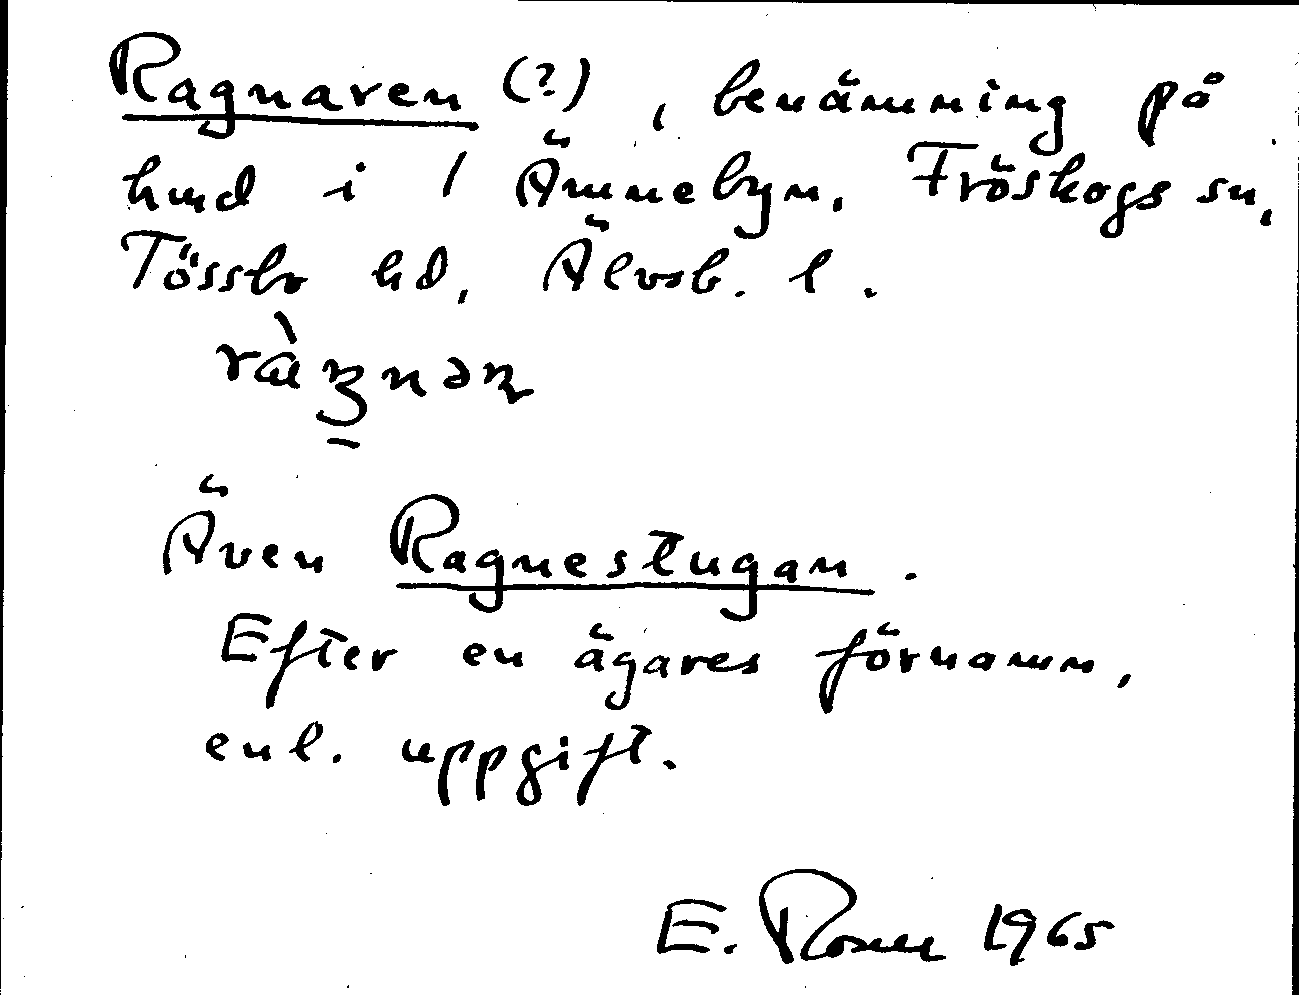 Ragnaren (?), benämning på
hmd i 1 Ämnebyn, Fröskogs sn,
Tössbo hd, Älvsb. l.
Även Ragnestugan.
Efter en ägares förnamn,
enl. uppgift.
E. 1965